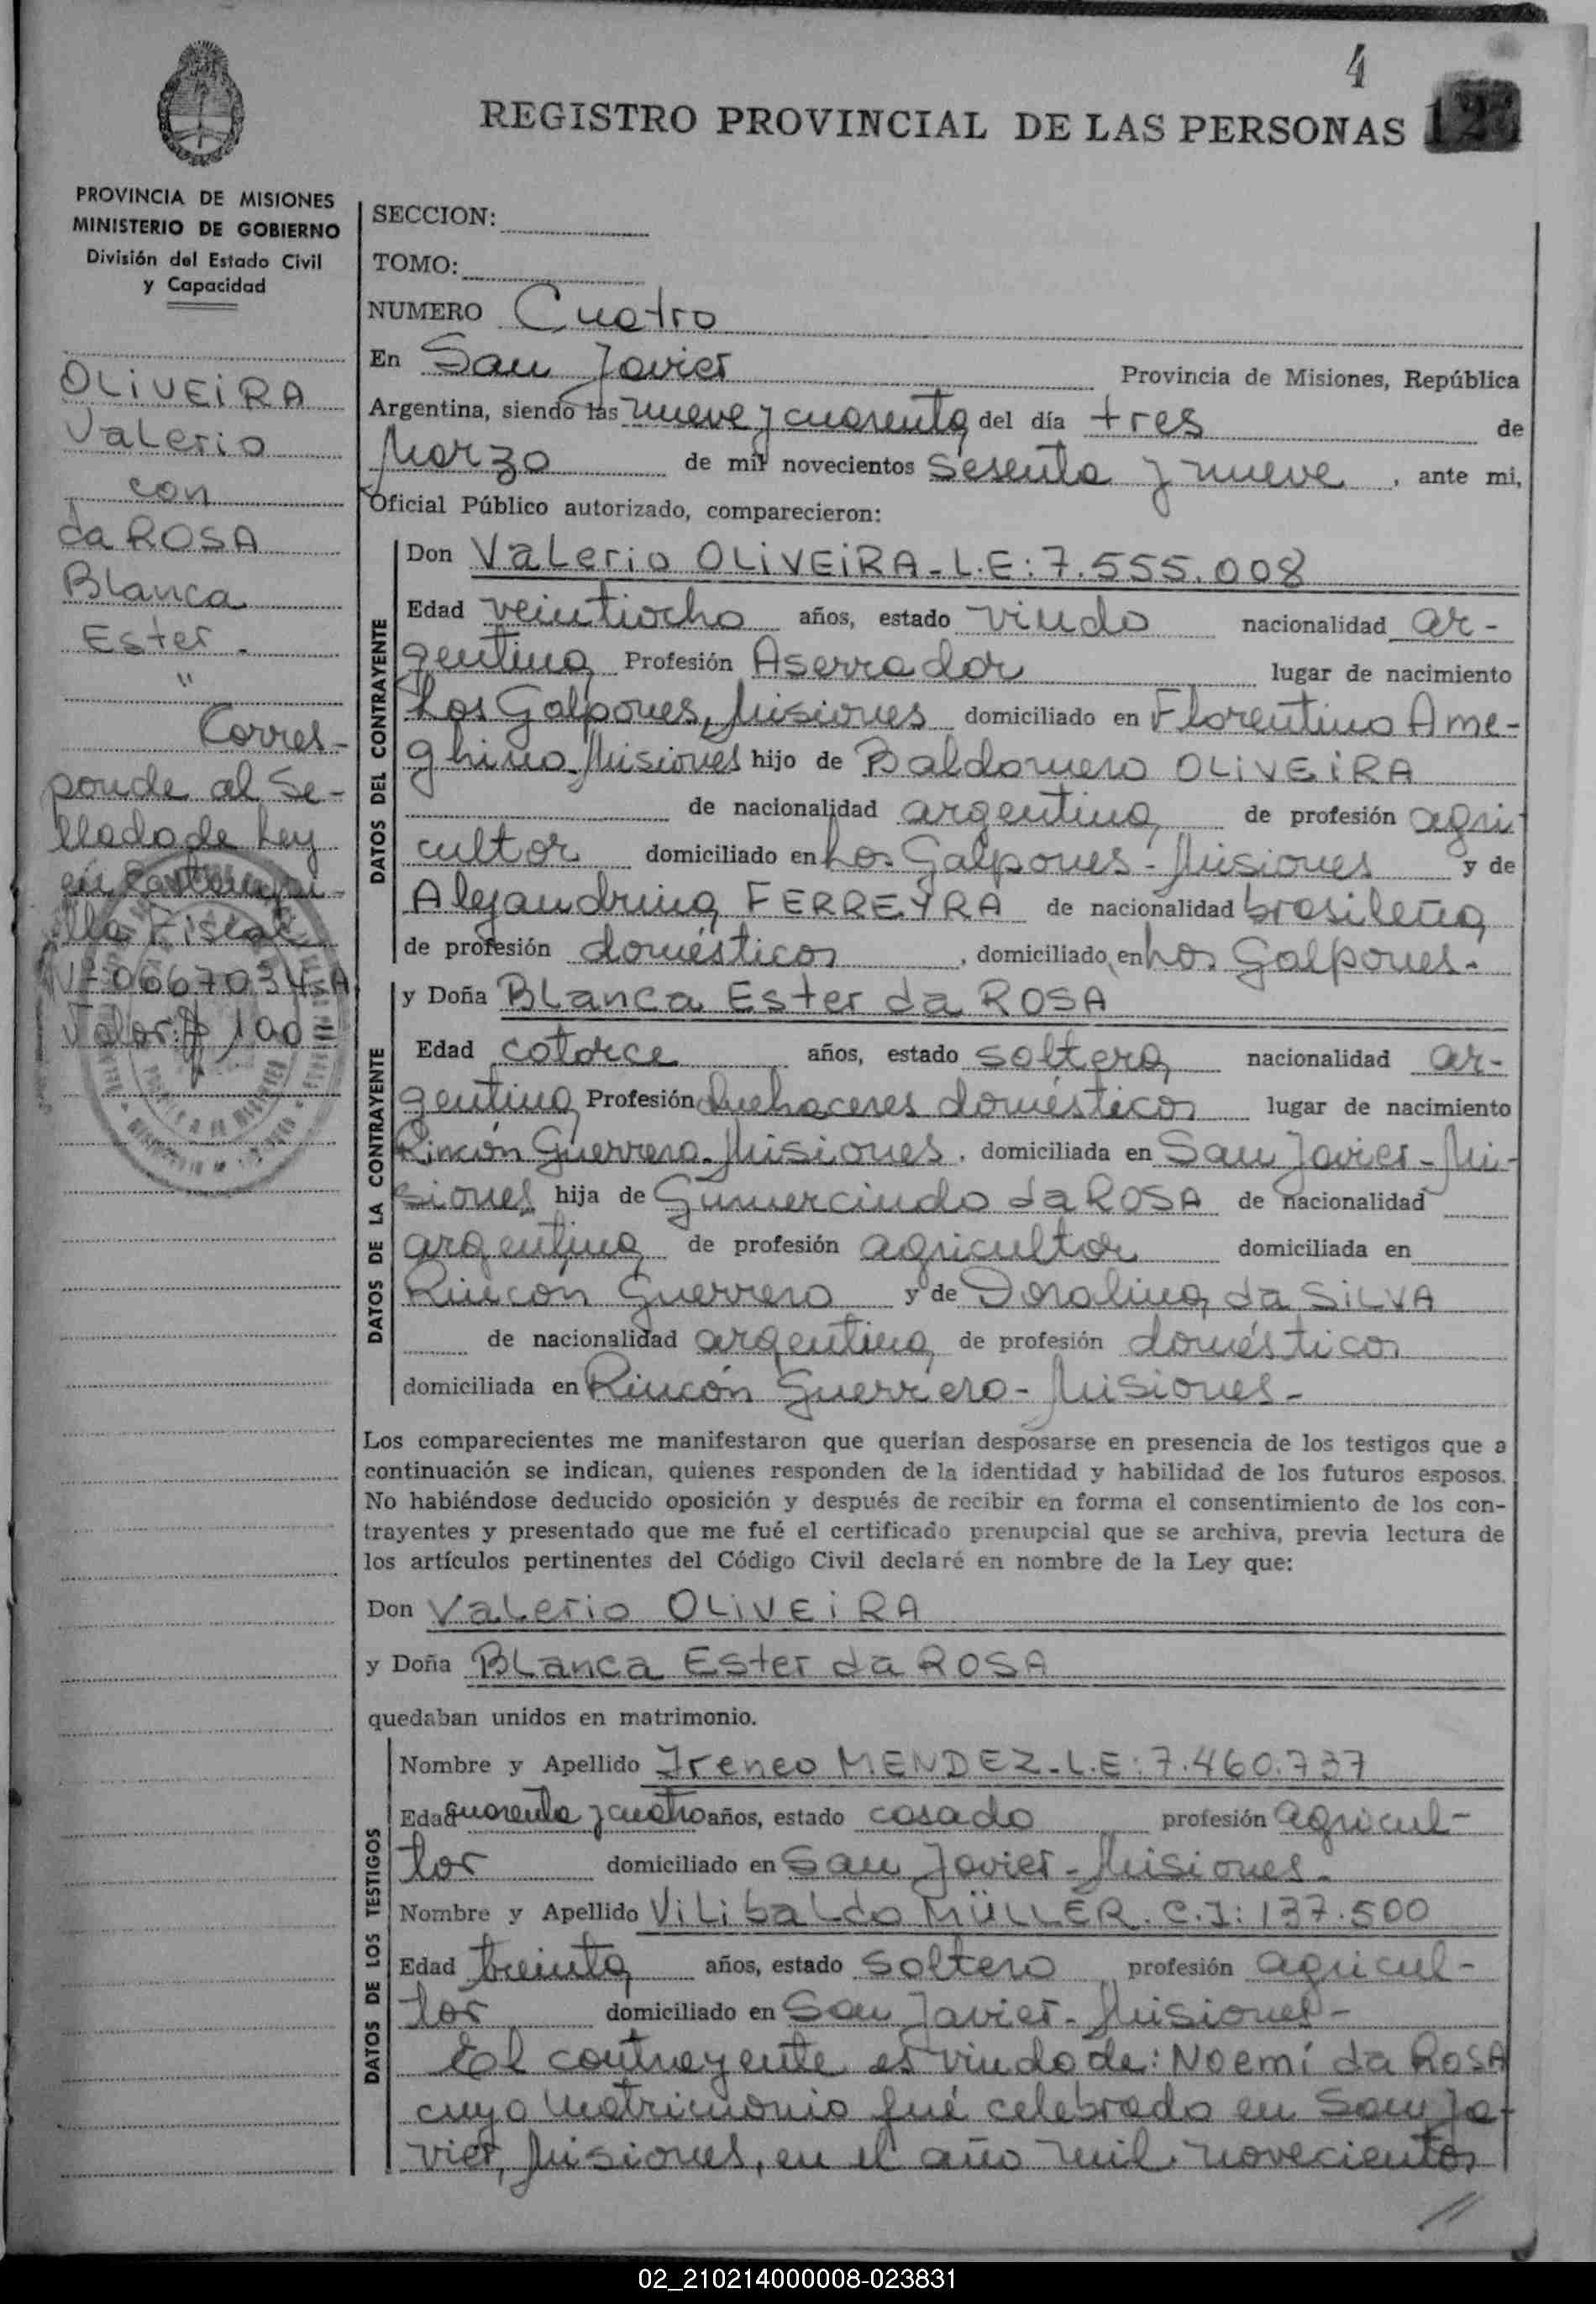 4
REGISTRO PROVINCIAL DE LAS PERSONAS
PROVINCIA DE MISIONES
MINISTERIO DE GOBIERNO
División del Estado Civil
y Capacidad
OLIVEIRA
Valerio
con
da ROSA
Blanca
Ester.
"
Corres-
ponde al Se-
llado de Ley
en Estampi-
lla Fiscal
Nº 0667034sA
Valor: $ 100=
SECCION:
TOMO:
NUMERO Cuatro
En San Javier Provincia de Misiones, República
Argentina, siendo las nueve y cuarenta del día tres de
Marzo de mil novecientos sesenta y nueve, ante mi,
Oficial Público autorizado, comparecieron:
DATOS DEL CONTRAYENTE
Don Valerio OLIVEIRA-L.E:7.555.008
Edad veintiocho años, estado viudo nacionalidad ar-
gentina Profesión Aserrador lugar de nacimiento
Los Galpones, Misiones domiciliado en Florentino Ame-
ghino-Misiones hijo de Baldomero OLIVEIRA
de nacionalidad argentina de profesión agri
cultor domiciliado en Los Galpones-Misiones y de
Alejandrina FERREYRA de nacionalidad brasileña
de profesión domésticos, domiciliado en Los Galpones-
DATOS DE LA CONTRAYENTE
y Doña Blanca Ester da ROSA
Edad catorce años, estado soltera nacionalidad ar-
gentina Profesión Quehaceres domésticos lugar de nacimiento
Rincón Guerrero-Misiones, domiciliada en San Javier-Mi-
siones hija de Gumercindo da ROSA de nacionalidad
argentina de profesión agricultor domiciliada en
Rincón Guerrero y de Doralina da SILVA
de nacionalidad argentina de profesión domésticos
domiciliada en Rincón Guerrero-Misiones-
Los comparecientes me manifestaron que querían desposarse en presencia de los testigos que a
continuación se indican, quienes responden de la identidad y habilidad de los futuros esposos.
No habiéndose deducido oposición y después de recibir en forma el consentimiento de los con-
trayentes y presentado que me fué el certificado prenupcial que se archiva, previa lectura de
los artículos pertinentes del Código Civil declaré en nombre de la Ley que:
Don Valerio OLIVEIRA
y Doña Blanca Ester da ROSA
quedaban unidos en matrimonio.
DATOS DE LOS TESTIGOS
Nombre y Apellido Ireneo MENDEZ-L.E:7.460.737
Edad cuarenta y cuatro años, estado casado profesión agricul-
tor domiciliado en San Javier-Misiones-
Nombre y Apellido Vilibaldo MÜLLER. C.I: 137.500
Edad treinta años, estado soltero profesión agricul-
tor domiciliado en San Javier-Misiones-
El contrayente es viudo de: Noemí da ROSA
cuyo matrimonio fué celebrado en San Ja-
vier, Misiones, en el año mil novecientos
//
02_210214000008-023831